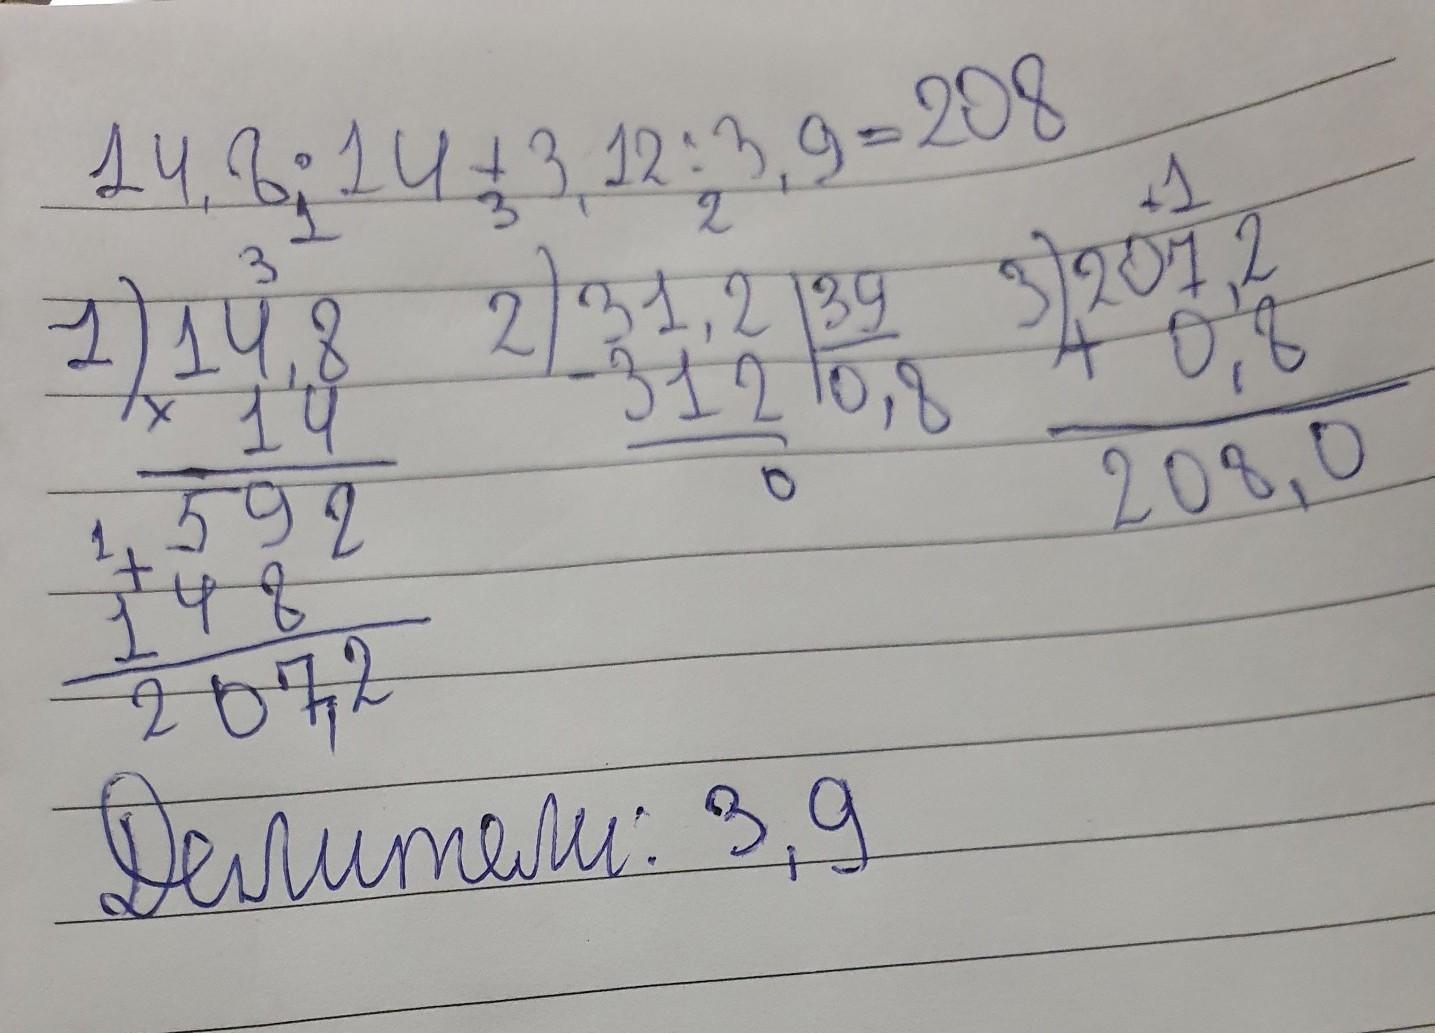 14,8:14+3,12:3,9=208
1 3 2
1) 14,8 2) 31,2 | 39 3) 207,2
3 +1
× 14 -312 | 0,8 + 0,8
592 0 208,0
1 +
148
207,2
Делители: 3,9